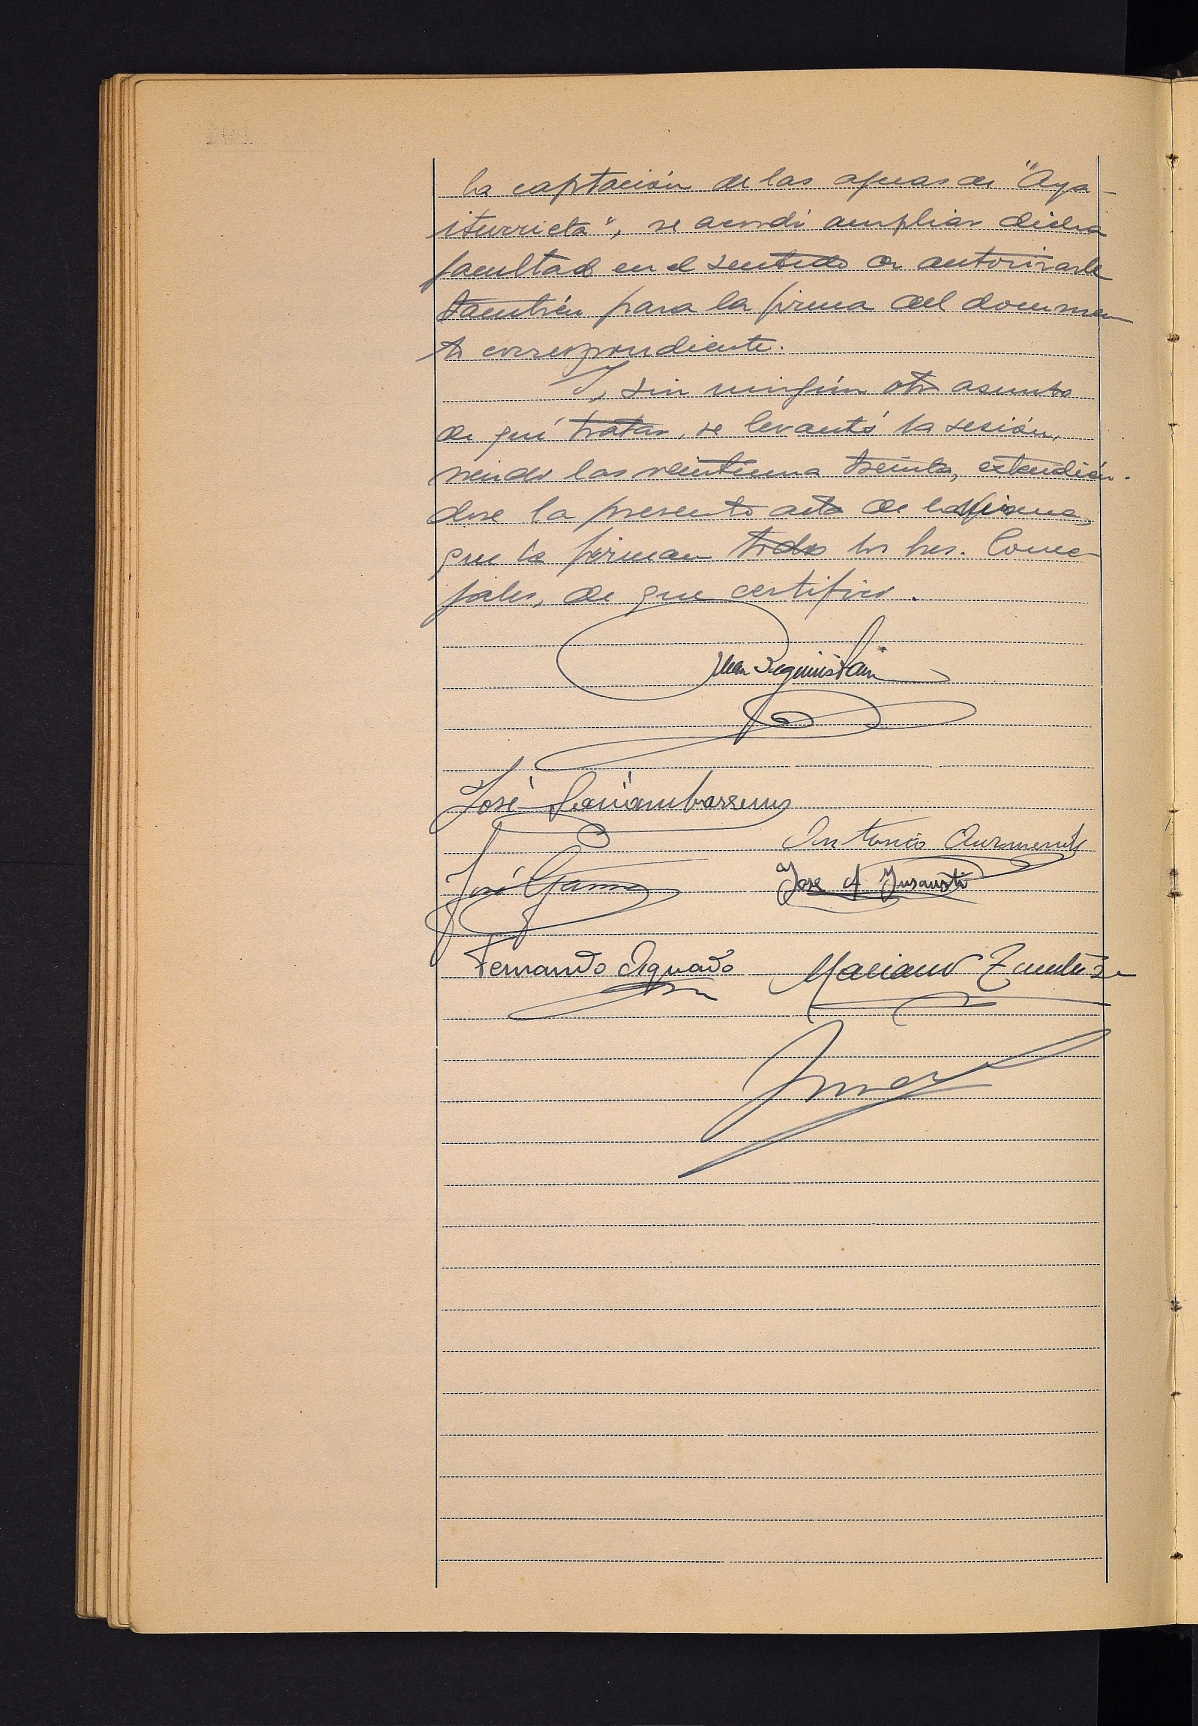 la captación de las aguas de "Aya-
iturrieta", se acordó ampliar dicha
facultad en el sentido de autorizarle
también para la firma del documen
to correspondiente.
Y, sin ningún otro asunto
de qué tratar, se levantó la sesión,
siendo las veintiuna treinta, extendién-
dose la presente acta de la misma,
que la firman todos los Sres. Conce-
jales, de que certifico.
Juan Eguiguistain
José
Antonio
José
Jose A Insausti
Fernando Aguado
Mariano